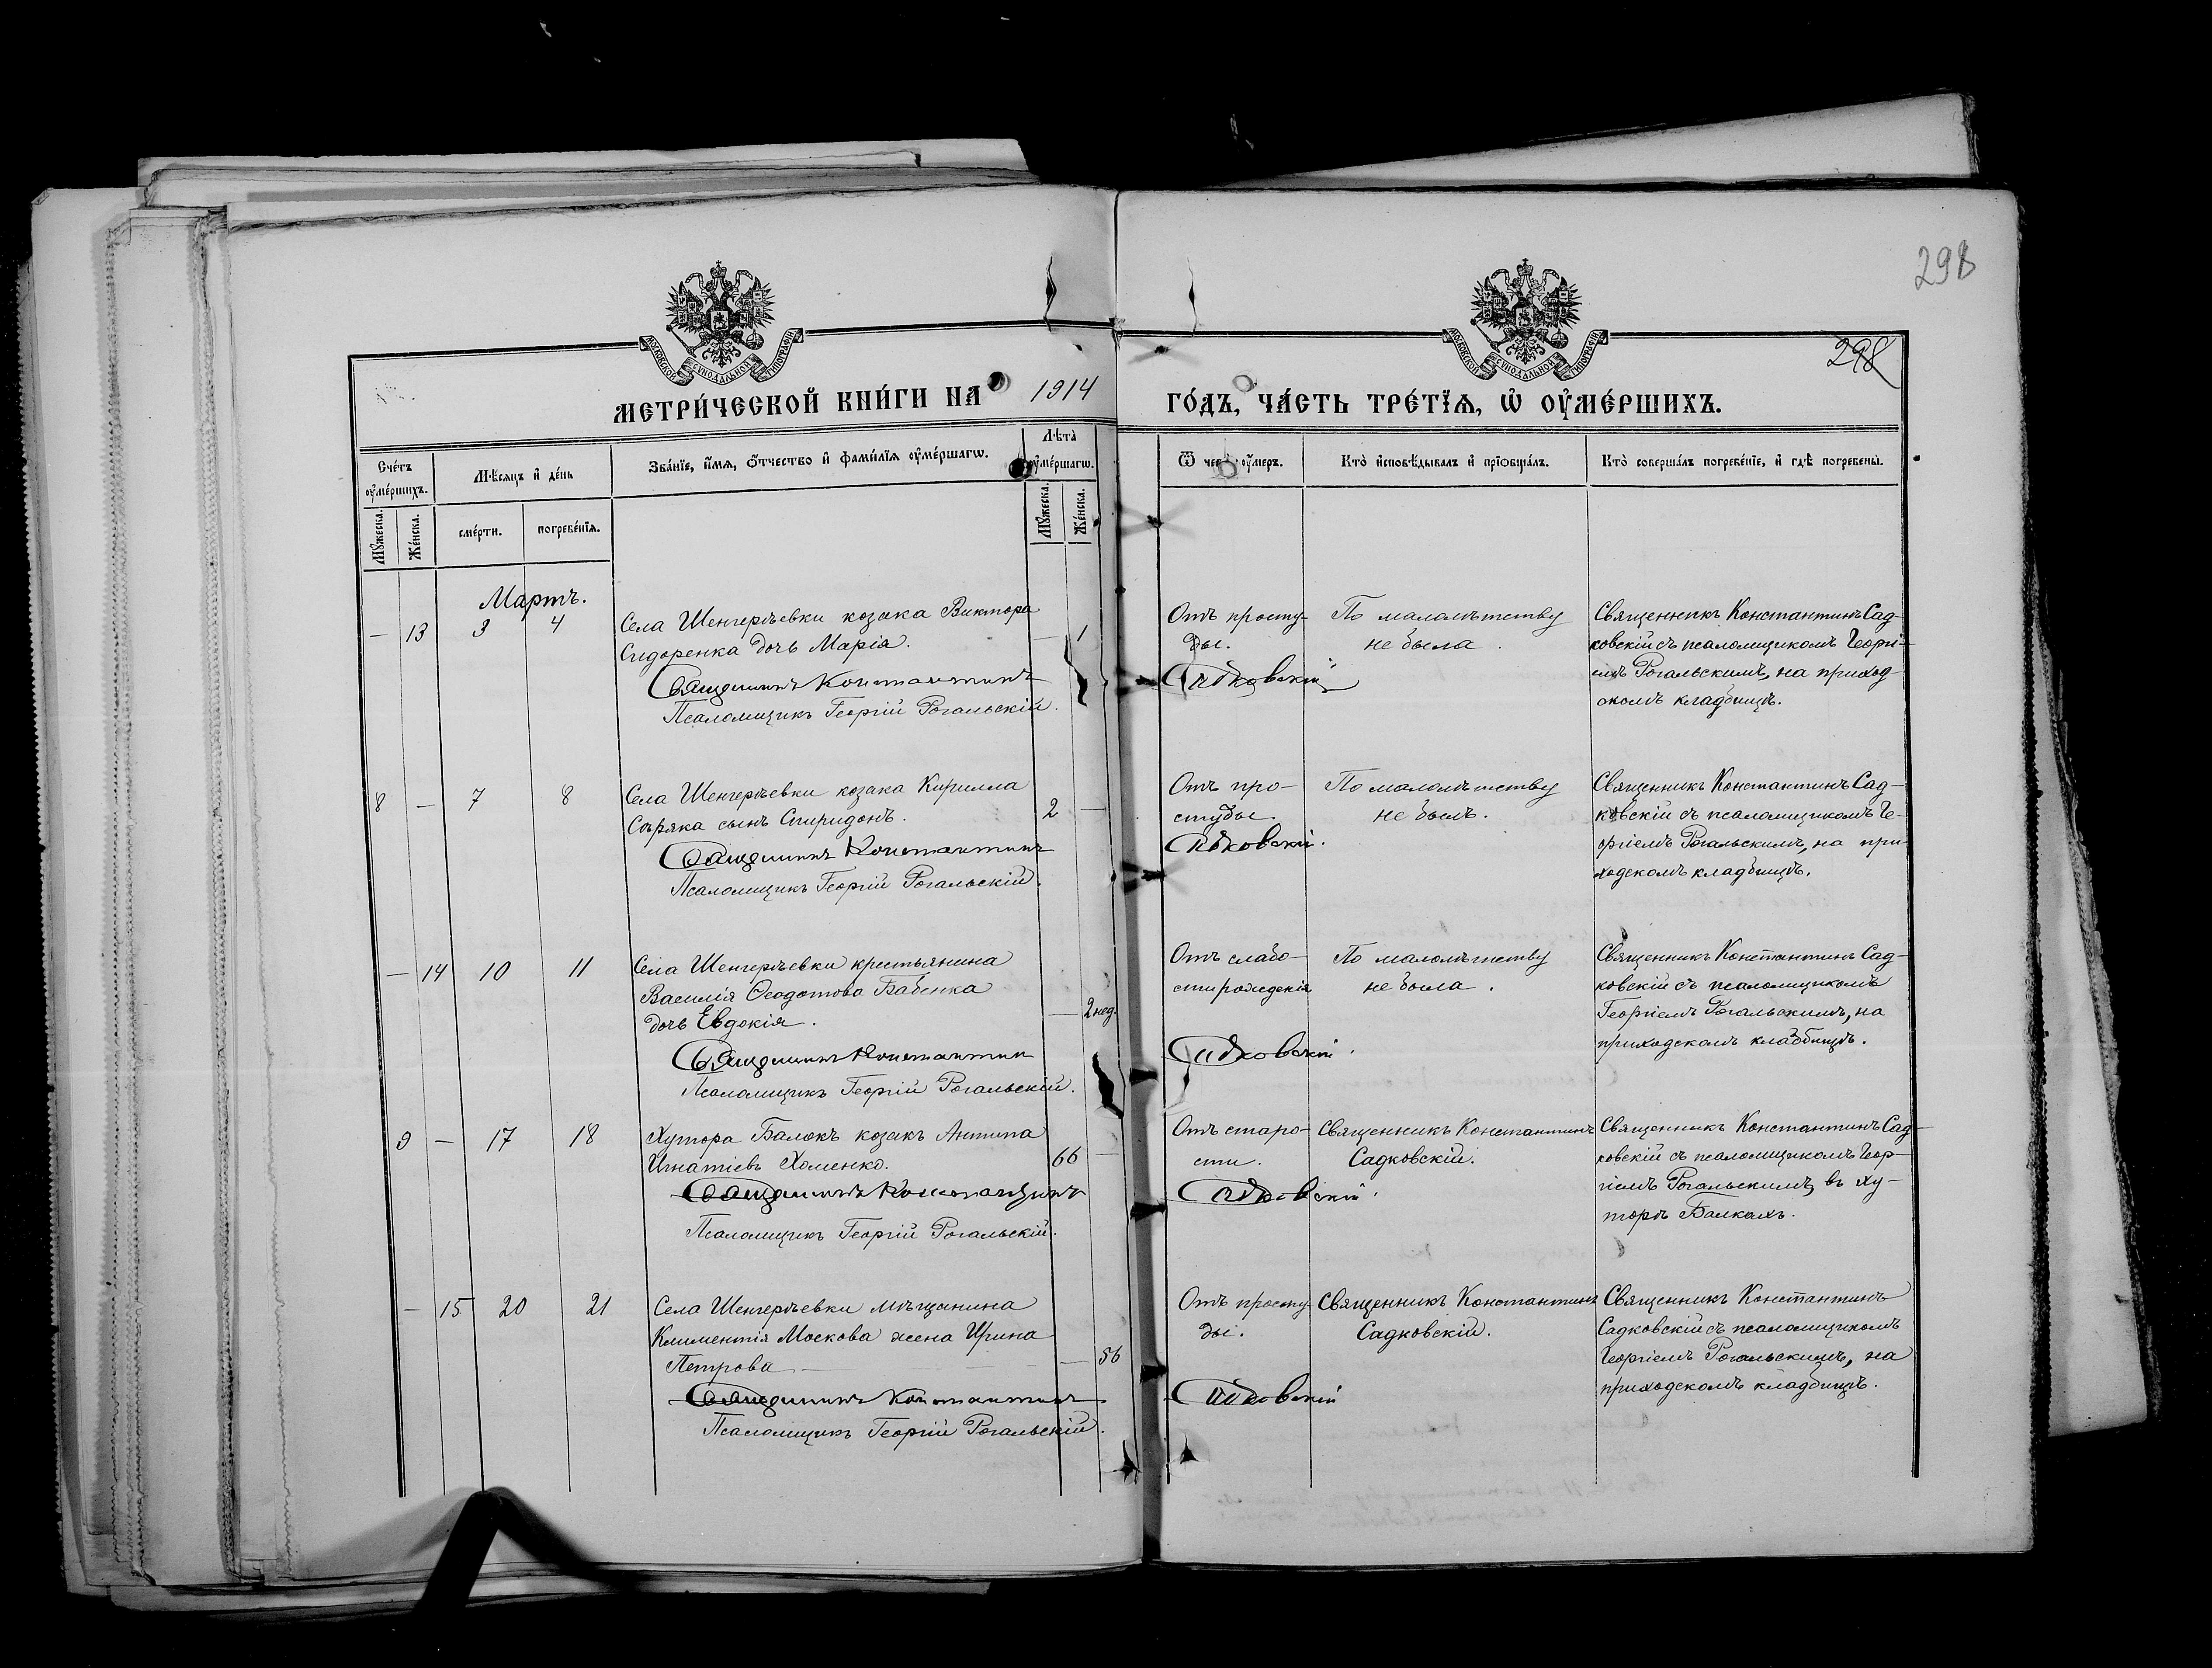 298
298
МОСКОВСКОЙ СѴНОДАЛЬНОЙ ТИПОГРАФІИ
МОСКОВСКОЙ СѴНОДАЛЬНОЙ ТИПОГРАФІИ
МЕТРИ́ЧЕСКОЙ КНИ́ГИ НА 1914 ГО́ДЪ, ЧА́СТЬ ТРЕ́ТЇѦ, Ѡ ОУ҆МЕ́РШИХЪ.
Сче́тъ оу҆ме́ршихъ.
Мꙋ́жеска.
Же́нска.
Мѣ́сяцъ и҆ де́нь
сме́рти.
погребе́нїѧ.
Зва́нїе, и҆́мѧ, ѻ҆́тчество и҆ фами́лїѧ оу҆ме́ршагѡ.
Лѣ́та оу҆ме́ршагѡ.
Мꙋ́жеска.
Же́нска.
Ѿ чегѡ̀ оу҆́меръ.
Кто̀ и҆сповѣ́дывалъ и҆ прїѡбща́лъ.
Кто̀ соверша́лъ погребе́нїе, и҆ гдѣ̀ погребены̀.
Мартъ.
— 13 3 4
Села Шенгерѣевки козака Виктора
Сидоренка дочь Марія.
— 1
Священникъ Константинъ
Псаломщикъ Георгій Рогальскій.
Отъ просту-
ды.
Садковскій
По малолѣтству
не была.
Священникъ Константинъ Сад-
ковскій съ псаломщикомъ Георгі-
емъ Рогальскимъ, на приход-
скомъ кладбищѣ.
8 — 7 8
Села Шенгерѣевки козака Кирилла
Сѣряка сынъ Спиридонъ.
2 —
Священникъ Константинъ
Псаломщикъ Георгій Рогальскій.
Отъ про-
студы.
Садковскій.
По малолѣтству
не былъ.
Священникъ Константинъ Сад-
ковскій съ псаломщикомъ Ге-
оргіемъ Рогальскимъ, на при-
ходскомъ кладбищѣ.
— 14 10 11
Села Шенгерѣевки крестьянина
Василія Ѳеодотова Бабенка
дочь Евдокія.
— 2 нед.
Священникъ Константинъ
Псаломщикъ Георгій Рогальскій.
Отъ слабо-
сти рожденія
Садковскій.
По малолѣтству
не была.
Священникъ Константинъ Сад-
ковскій съ псаломщикомъ
Георгіемъ Рогальскимъ, на
приходскомъ кладбищѣ.
9 — 17 18
Хутора Балокъ козакъ Антипа
Игнатіевъ Хоменко.
66 —
Священникъ Константинъ
Псаломщикъ Георгій Рогальскій.
Отъ старо-
сти.
Садковскій.
Священникъ Константинъ
Садковскій.
Священникъ Константинъ Сад-
ковскій съ псаломщикомъ Геор-
гіемъ Рогальскимъ, въ ху-
торѣ Балкахъ.
— 15 20 21
Села Шенгерѣевки мѣщанина
Климентія Москова жена Ирина
Петрова —
— 56
Священникъ Константинъ
Псаломщикъ Георгій Рогальскій.
Отъ просту-
ды.
Садковскій
Священникъ Константинъ
Садковскій.
Священникъ Константинъ
Садковскій съ псаломщикомъ
Георгіемъ Рогальскимъ, на
приходскомъ кладбищѣ.